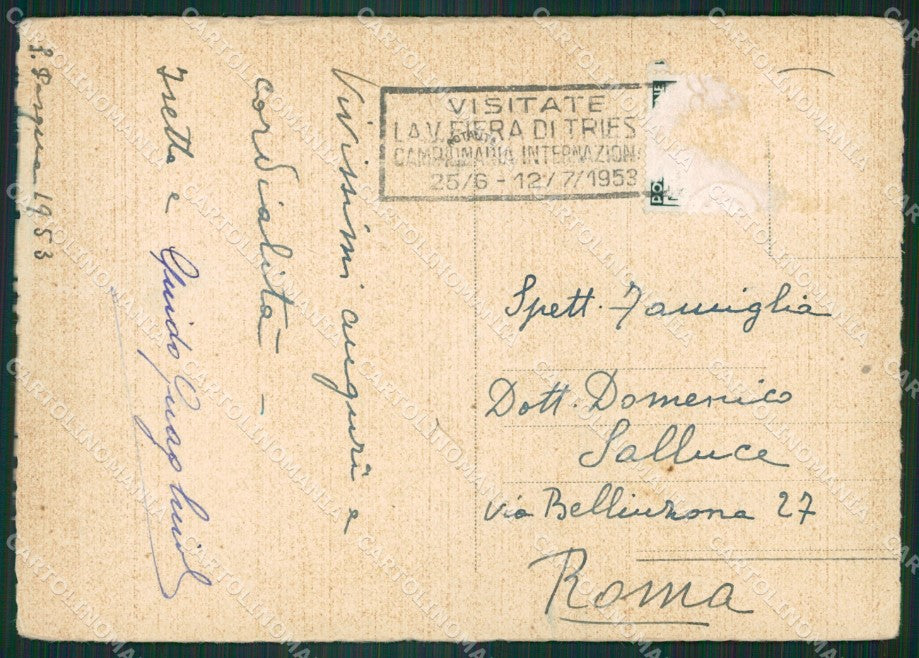 S. Pasqua 1953
Vivissimi auguri e
cordialità –
Isetta e Guido
VISITATE
LA V. FIERA DI TRIES
CAMPIONARIA INTERNAZION
25/6 - 12/7/1953
Spett. Famiglia
Dott. Domenico
Salluce
via Bellinzona 27
Roma
CARTOLINOMANIA